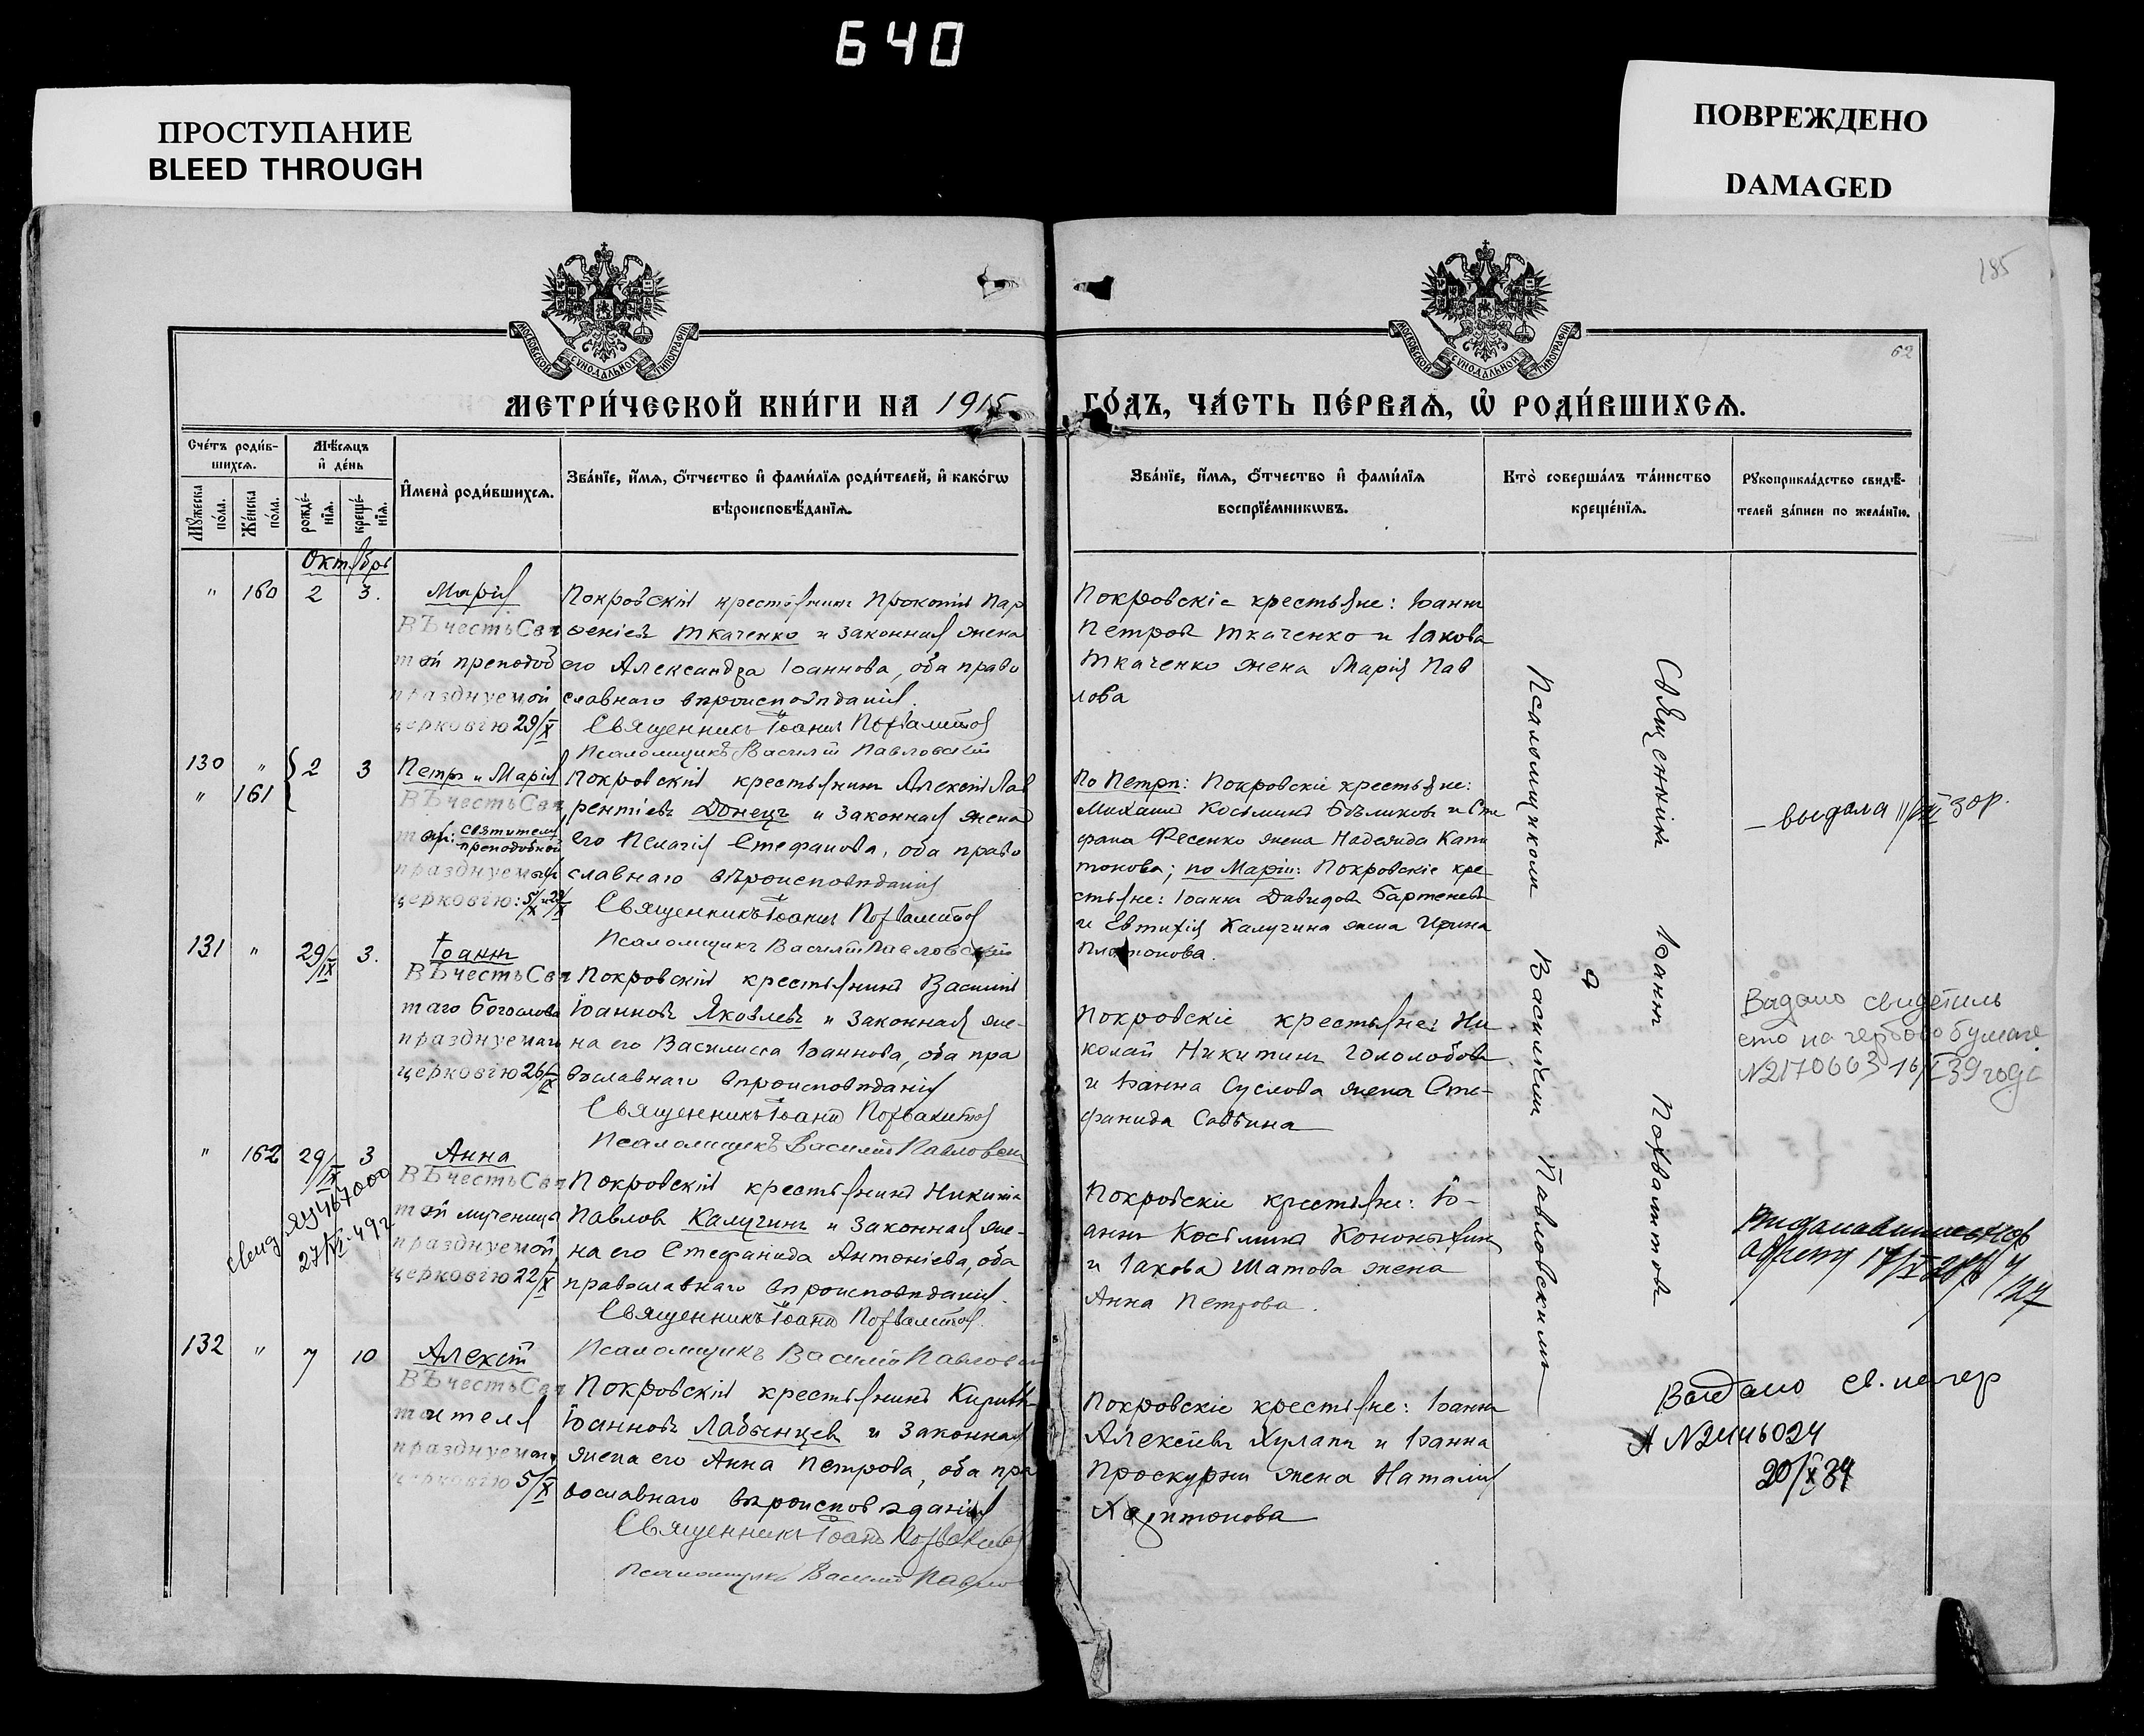 640
ПРОСТУПАНИЕ
BLEED THROUGH
ПОВРЕЖДЕНО
DAMAGED
185
62
МОСКОВСКОЙ СѴНОДАЛЬНОЙ ТИПОГРАФІИ
МОСКОВСКОЙ СѴНОДАЛЬНОЙ ТИПОГРАФІИ
МЕТРИ́ЧЕСКОЙ КНИ́ГИ НА 1915 ГО́ДЪ, ЧА́СТЬ ПЕ́РВАѦ, Ѡ҆ РОДИ́ВШИХСѦ.
Сче́тъ роди́в-
шихсѧ.
Мѣ́сѧцъ
и҆ де́нь
Мꙋ́жеска
по́ла.
Же́нска
по́ла.
рожде́-
нїѧ.
креще́-
нїѧ.
И҆мена̀ роди́вшихсѧ.
Зва́нїе, и҆́мѧ, ѻ҆́тчество и҆ фами́лїѧ роди́телей, и҆ како́гѡ
вѣроисповѣ́данїѧ.
Зва́нїе, и҆́мѧ, ѻ҆́тчество и҆ фами́лїѧ
воспрїе́мникѡвъ.
Кто̀ соверша́лъ та́инство
креще́нїѧ.
Рꙋкоприкла́дство свидѣ́-
телей за́писи по жела́нїю.
Октябрь
" 160 2 3. Марія
Въ честь Свя
той преподоб
празднуемой
церковію 29/X
Покровскій крестьянинъ Прокопій Пар
ѳеніевъ Ткаченко и законная жена
его Александра Іоаннова, оба право
славнаго вѣроисповѣданія.
Священникъ Іоаннъ Похвалитовъ
Псаломщикъ Василій Павловскій
Покровскіе крестьяне: Іоаннъ
Петровъ Ткаченко и Іакова
Ткаченко жена Марія Пав
лова
130 " 2 3 Петръ и Марія
" 161
Въ честь Свя
святителя
преподобной
празднуемыя
церковію: 5/X и 29/X
Покровскій крестьянинъ Алексій Лав
рентіевъ Донецъ и законная жена
его Пелагія Стефанова, оба право
славнаго вѣроисповѣданія
Священникъ Іоаннъ Похвалитовъ
Псаломщикъ Василій Павловскій
По Петрѣ: Покровскіе крестьяне:
Михаилъ Косьминъ Бѣликовъ и Сте
фана Фесенко жена Надежда Капи
тонова; по Маріи: Покровскіе кре
стьяне: Іоаннъ Давидовъ Бартеневъ
и Евтихія Калугина жена Ирина
Платонова.
— выдала 11/VIII 30 г.
131 " 29/IX 3. Іоаннъ
Въ честь Свя
таго Богослова
празднуемаго
церковію 26/IX
Покровскій крестьянинъ Василій
Іоанновъ Яковлевъ и законная же-
на его Василисса Іоаннова, оба пра
вославнаго вѣроисповѣданія
Священникъ Іоаннъ Похвалитовъ
Псаломщикъ Василій Павловскій
Покровскіе крестьяне: Ни
колай Никитинъ Гололобовъ
и Іоанна Суслова жена Сте-
фанида Саввина
Видано свидетель
ство на гербово бумаге
N2170663 16/I 39 года
" 162 29/IX 3 Анна
Въ честь Свя
той мученица
празднуемой
церковію 22/X
Покровскій крестьянинъ Никита
Павловъ Калугинъ и законная же-
на его Стефанида Антоніева, оба
православнаго вѣроисповѣданія.
Священникъ Іоаннъ Похвалитовъ.
Псаломщикъ Василій Павловскій
Покровскіе крестьяне: Іо-
аннъ Косьминъ Кононыхинъ
и Іакова Шатова жена
Анна Петрова.
132 " 7 10 Алексій
Въ честь Свя
тителя
празднуемаго
церковію 5/X
Покровскій крестьянинъ Кириллъ
Іоанновъ Лабынцевъ и законная
жена его Анна Петрова, оба пра
вославнаго вѣроисповѣданія
Священникъ Іоаннъ Похвалитовъ
Псаломщикъ Василій Павло
Покровскіе крестьяне: Іоаннъ
Алексіевъ Хулапъ и Іоанна
Проскурни жена Наталія
Харитонова
Выдано св.
20/X 34
Священникъ Іоаннъ Похвалитовъ
и
Псаломщикомъ Василіемъ Павловскимъ